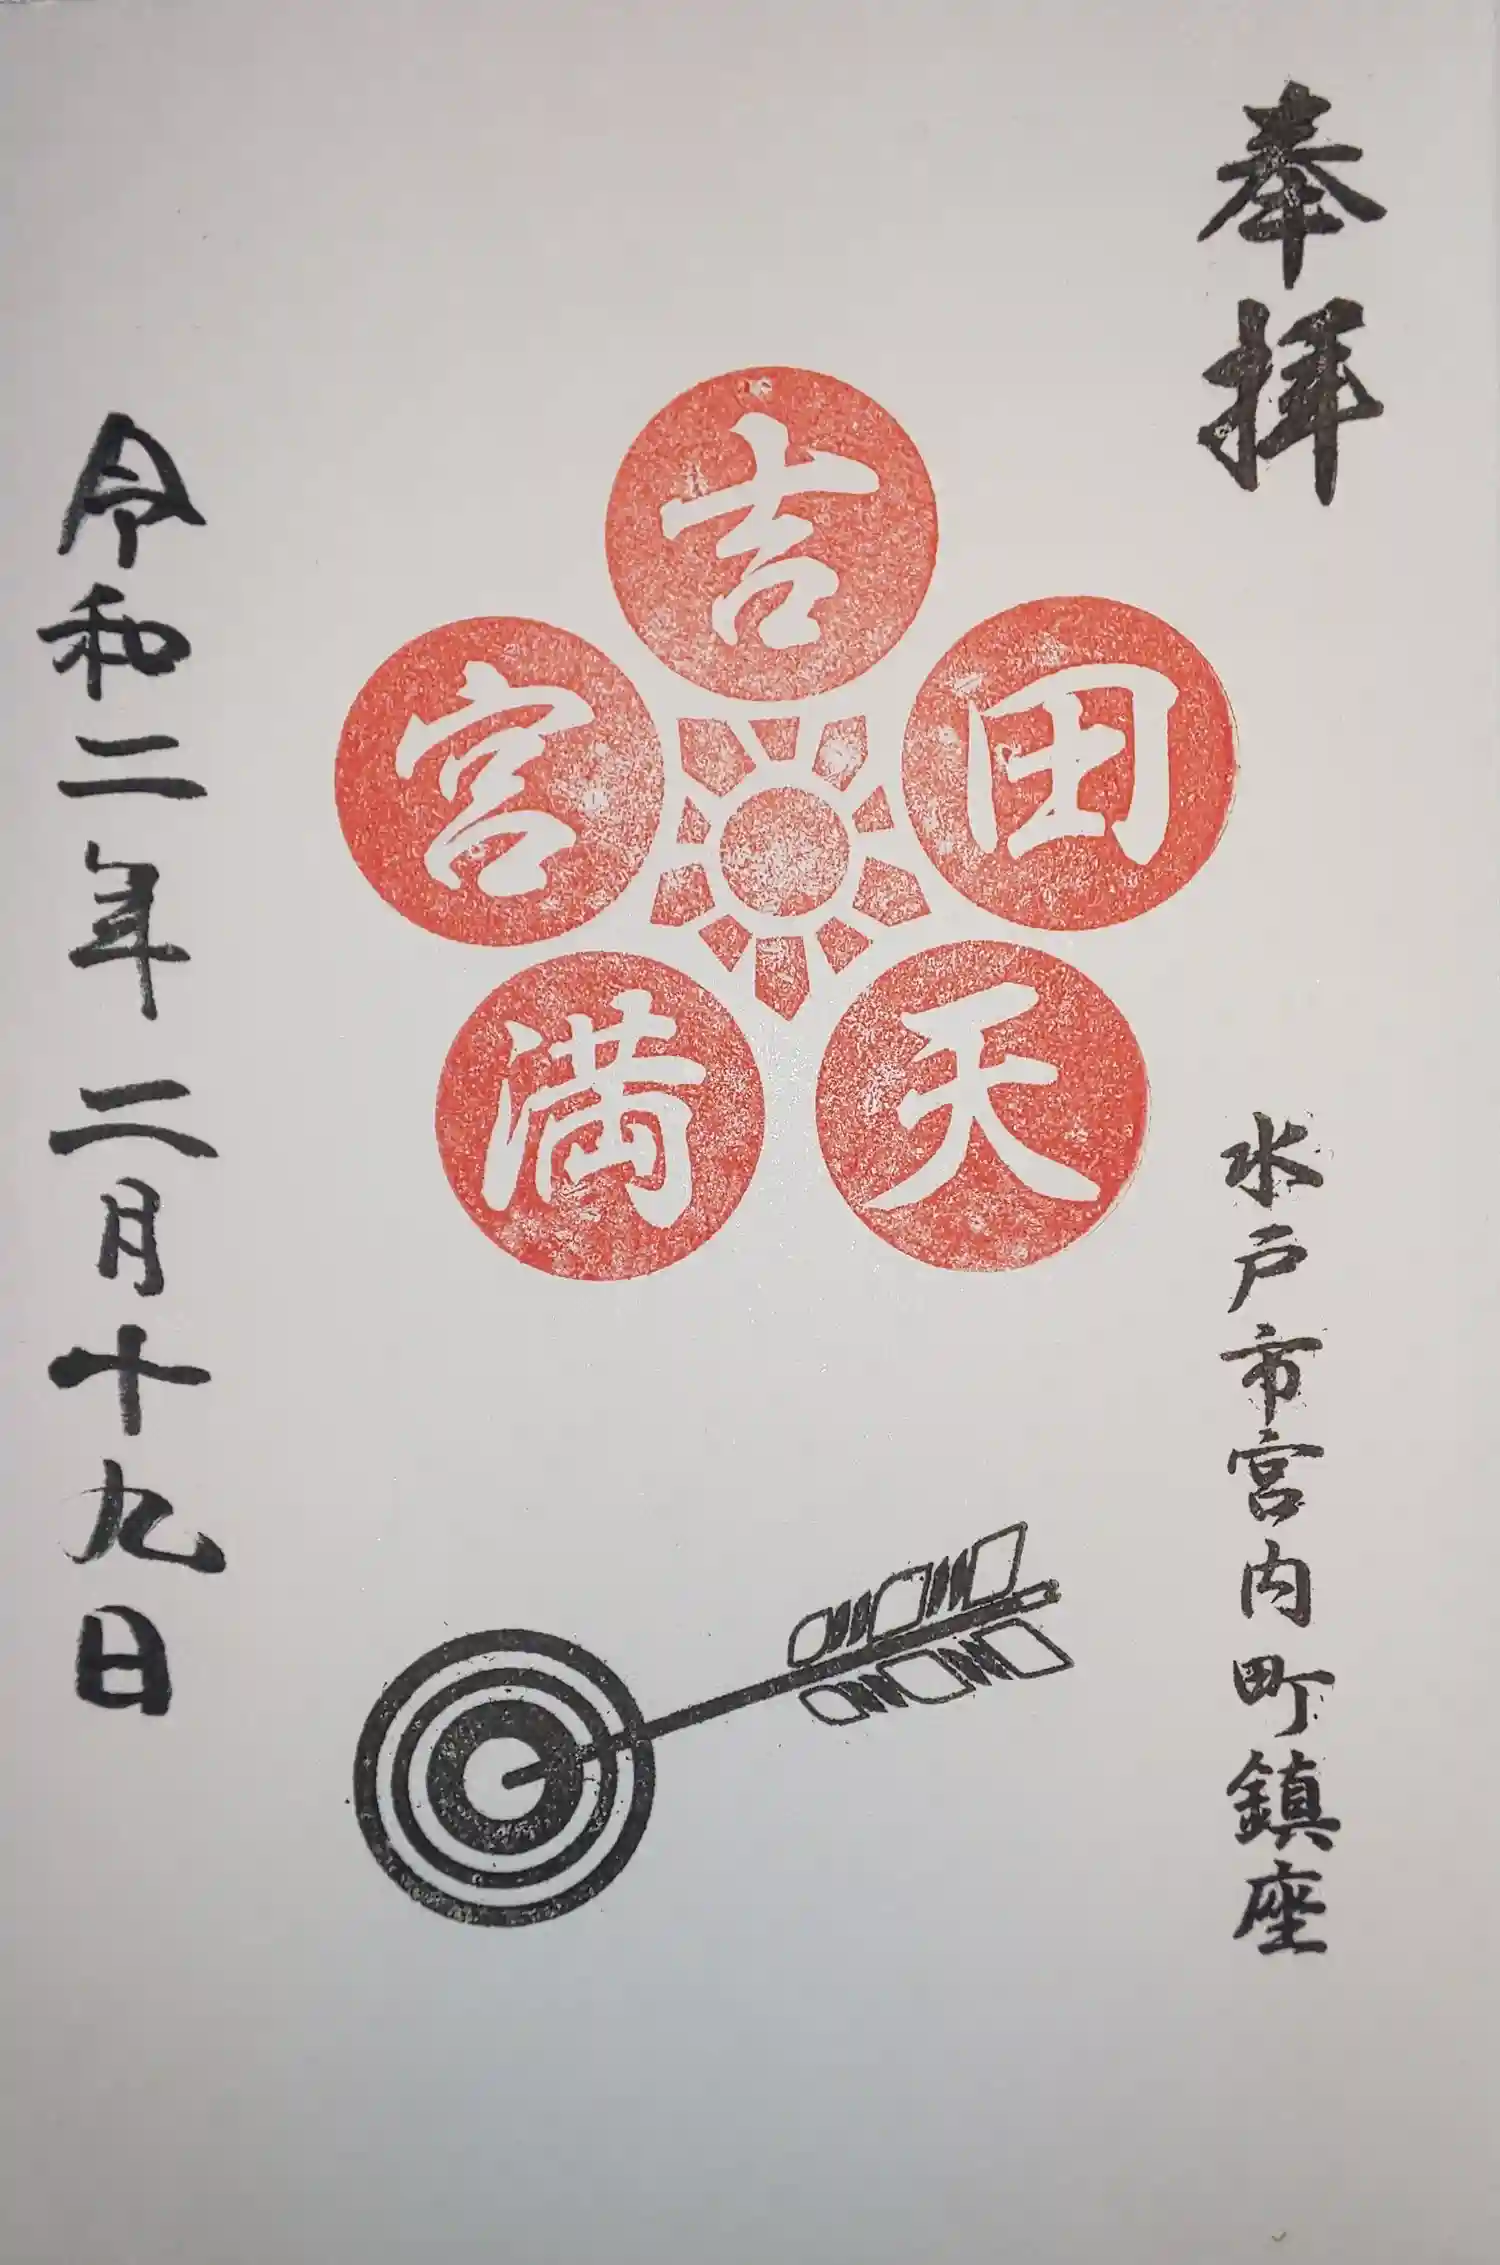 奉拝
水戸市宮内町鎮座
吉田天満宮
令和二年二月十九日